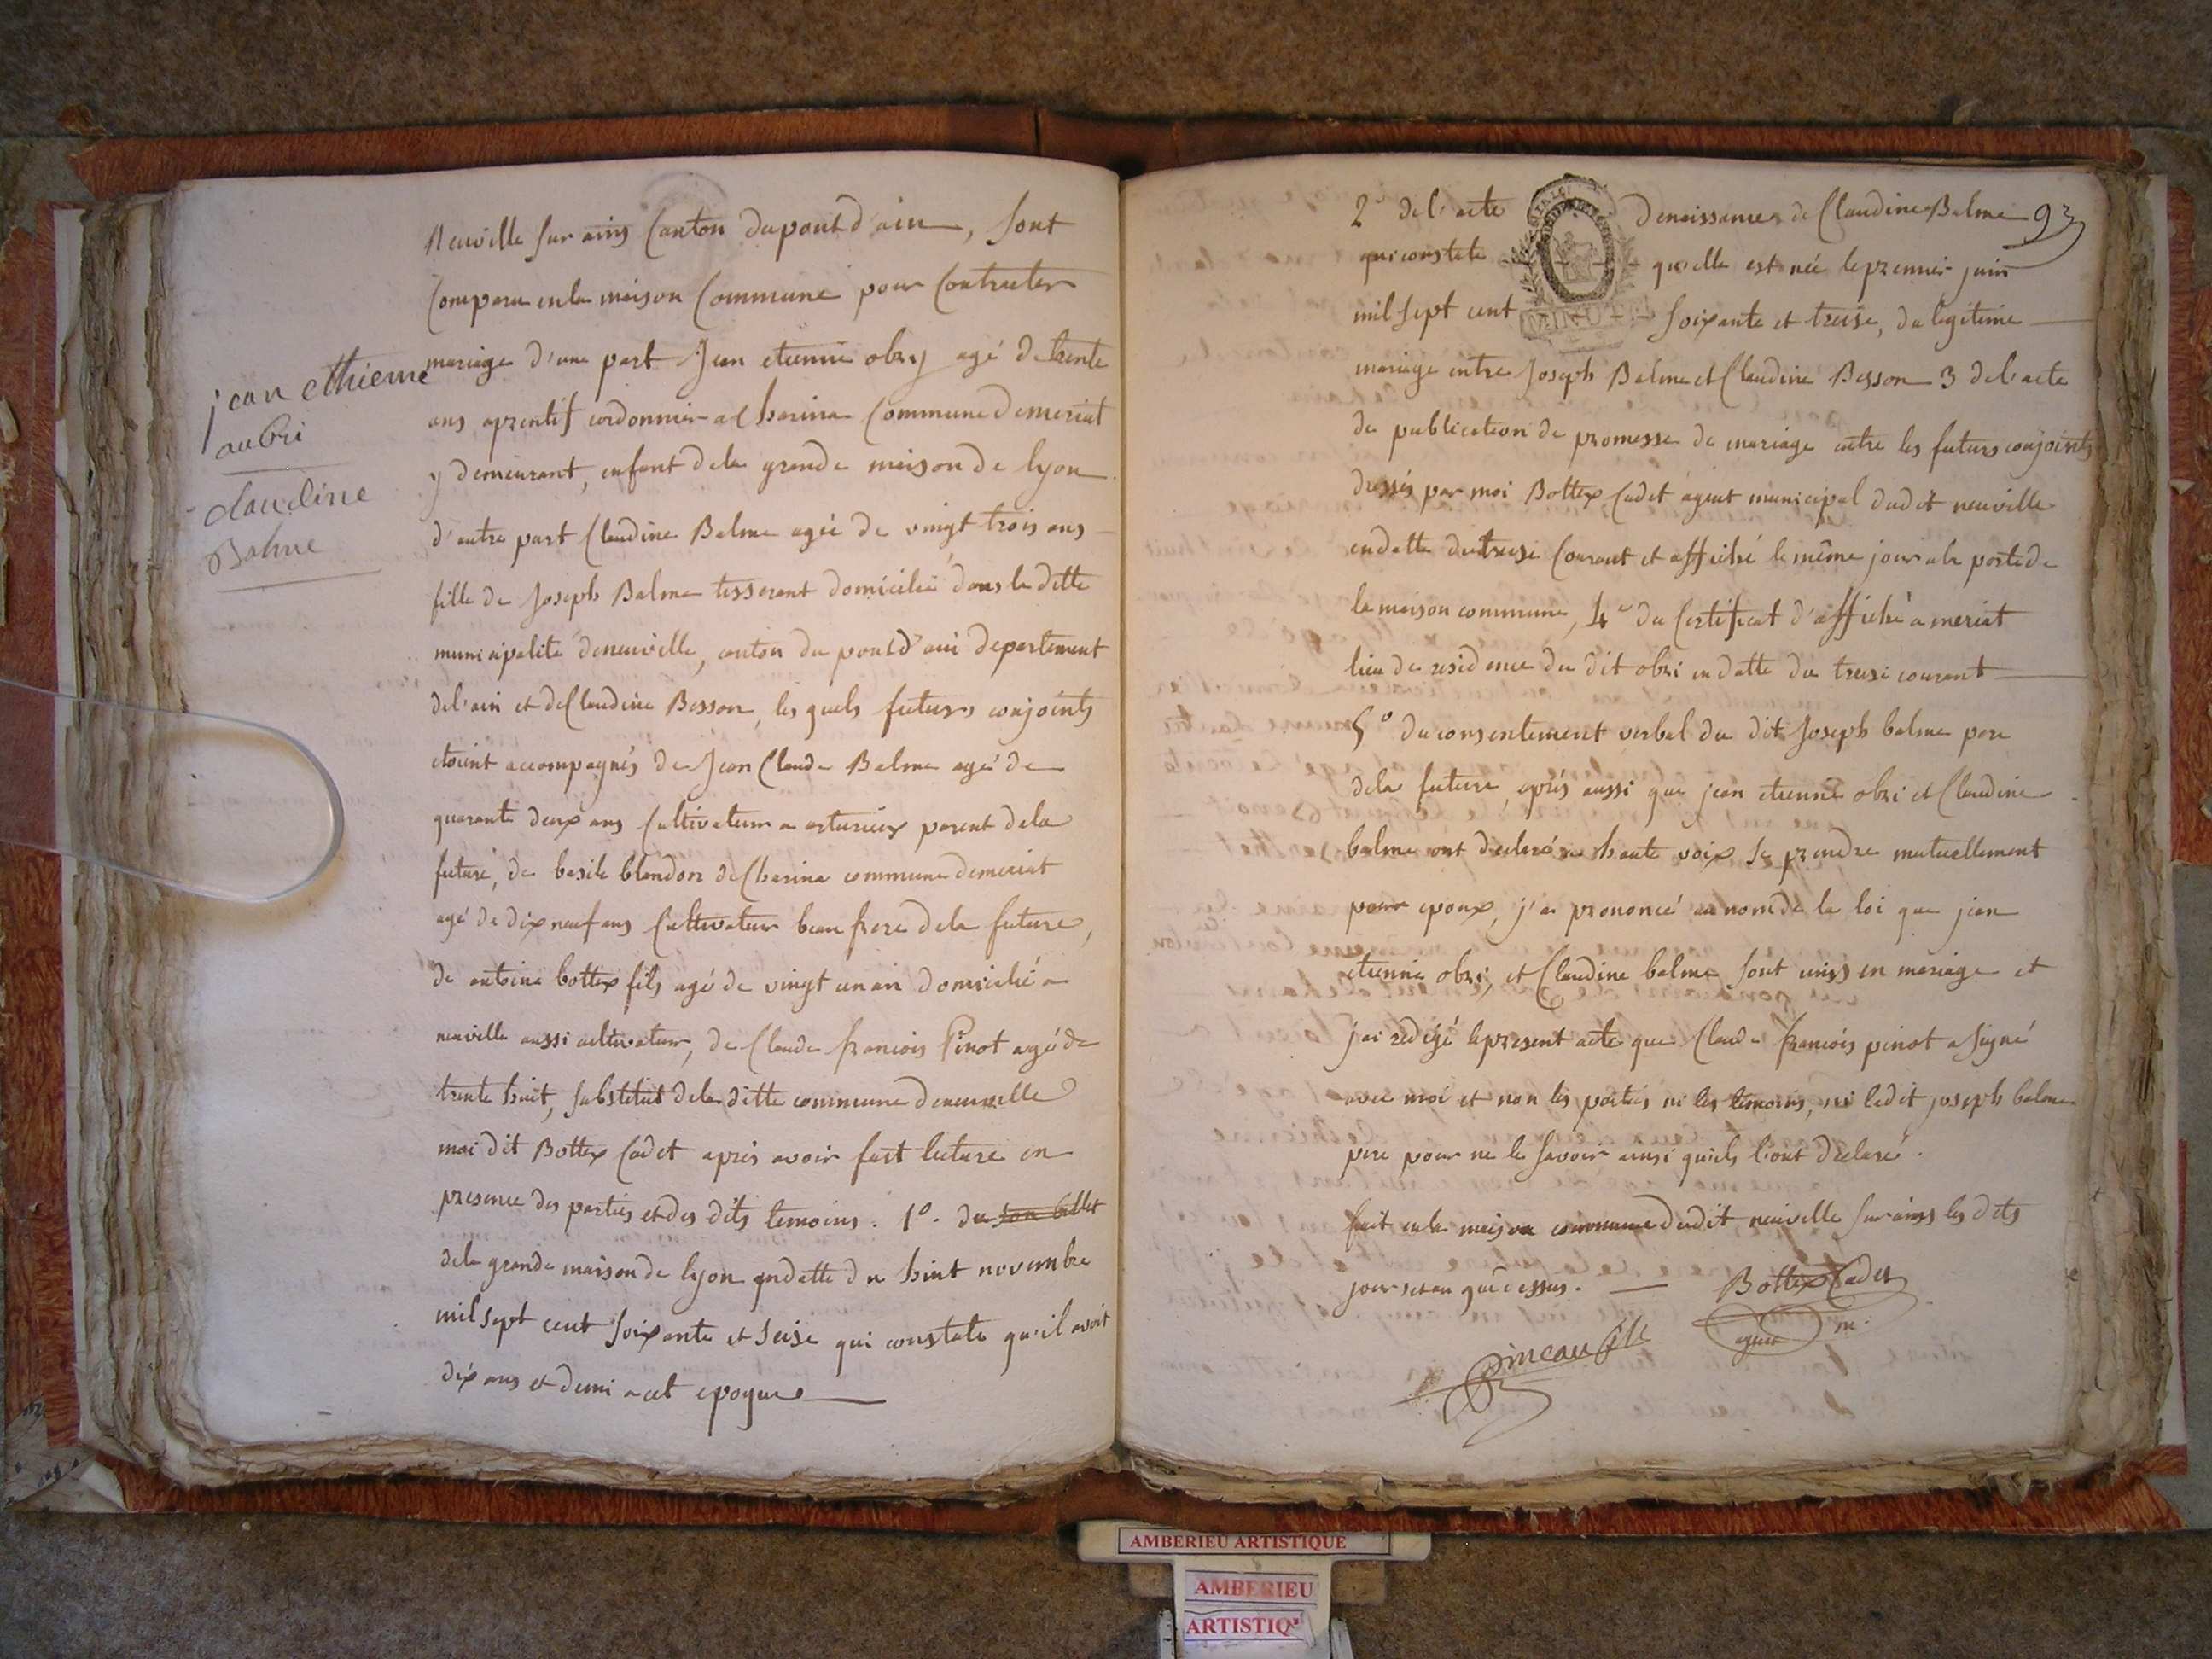 jean ethienne
aubri
claudine
Balme
Neuville sur ains Canton du pont d'ain, sont
Comparu en la maison Commune pour Contracter
mariage d'une part Jean etienne obry agé de trente
ans aprentif cordonnier a Charina Commune de meriat
y demeurant, enfant de la grande maison de lyon
d'autre part Claudine Balme agée de vingt trois ans
fille de Joseph Balme tisserant domicilié dans la ditte
municipalité de neuville, canton du pont d'ain departement
de l'ain et de Claudine Besson, les quels futurs conjoints
etoient accompagnés de Jean Claude Balme agé de
quarante deux ans Cultivateur a parent de la
future, de basile blandon de Charina commune de meriat
agé de dix neuf ans Cultivateur beau frere de la future,
de antoine bottex fils agé de vingt un an domicilié a
neuville aussi cultivateur, de Claude francois Pinot agé de
trente huit, substitut de la ditte commune de neuville
moi dit Bottex Cadet après avoir fait lecture en
presence des parties et des dits temoins. 1º. du son billet
de la grande maison de lyon en datte du huit novembre
mil sept cent soixante et seise qui constate qu'il avoit
dix ans et demi a cet epoque
93
2º de l'acte de naissance de Claudine Balme
qui constate qu'elle est née le premier juin
MINUTE
mil sept cent soixante et treise, du legitime
mariage entre Joseph Balme et Claudine Besson 3 de l'acte
de publication de promesse de mariage entre les futurs conjoints
dressés par moi Bottex Cadet agent municipal dudit neuville
en datte du treise Courant et affiché le même jour a la porte de
la maison commune, 4º du Certificat d'affiche a meriat
lieu de residence du dit obri en datte du treise courant
5º du consentement verbal du dit Joseph balme pere
de la future, après aussi que jean etienne obri et Claudine
balme ont declaré a haute voix se prendre mutuellement
pour epoux, j'ai prononcé au nom de la loi que jean
etienne obri, et Claudine balme sont unis en mariage et
j'ai redigé le present acte que Claude francois pinot a signé
avec moi et non les parties ni les temoins, ni ledit joseph balme
pere pour ne le savoir ainsi qu'ils l'ont declaré.
fait en la maison commune dudit neuville sur ains les dits
jours et an que dessus.
Bottex Cadet
agent m.
pineau
AMBERIEU ARTISTIQUE
AMBERIEU
ARTISTIQ